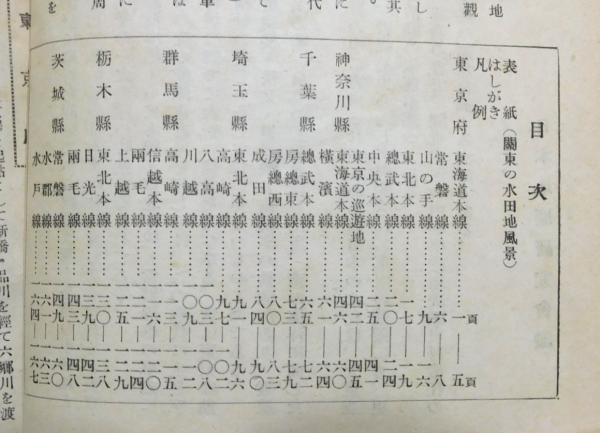 目次
表紙(關東の水田地風景)
はしがき
凡例
東京府 東海道本線…………一頁―五頁
常磐線…………六―八
山の手線…………九―一六
東北本線…………一七―一九
總武本線…………二〇―二四
中央本線…………二五―四一
東京の巡遊地…………四二―四五
神奈川縣 東海道本線…………四六―六〇
橫濱線…………六一―六四
千葉縣 總武本線…………六五―七二
房總東線…………七三―七九
房總西線…………八〇―八三
成田線…………八四―九〇
埼玉縣 東北本線…………九一―九六
高崎線…………九七―一〇二
八高線…………一〇三―一〇八
川越線…………一〇九―一一二
群馬縣 高崎線…………一一三―一一五
信越本線…………一一六―一二〇
兩毛線…………一二一―一二四
上越線…………一二五―一二九
栃木縣 東北本線…………一三〇―一三八
日光線…………一三九―一四二
兩毛線…………一四三―一四八
茨城縣 常磐線…………一四九―一六〇
水郡線…………一六一―一六三
水戶線…………一六四―一六七